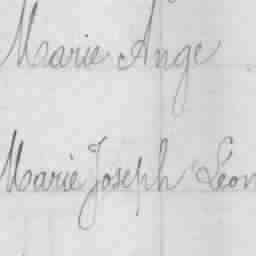 Marie Ange
Marie Joseph Léon